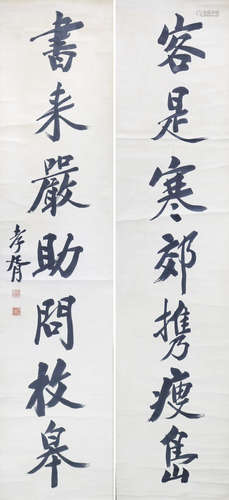 客是寒郊攜瘦島
書来嚴助問枚皋
孝胥